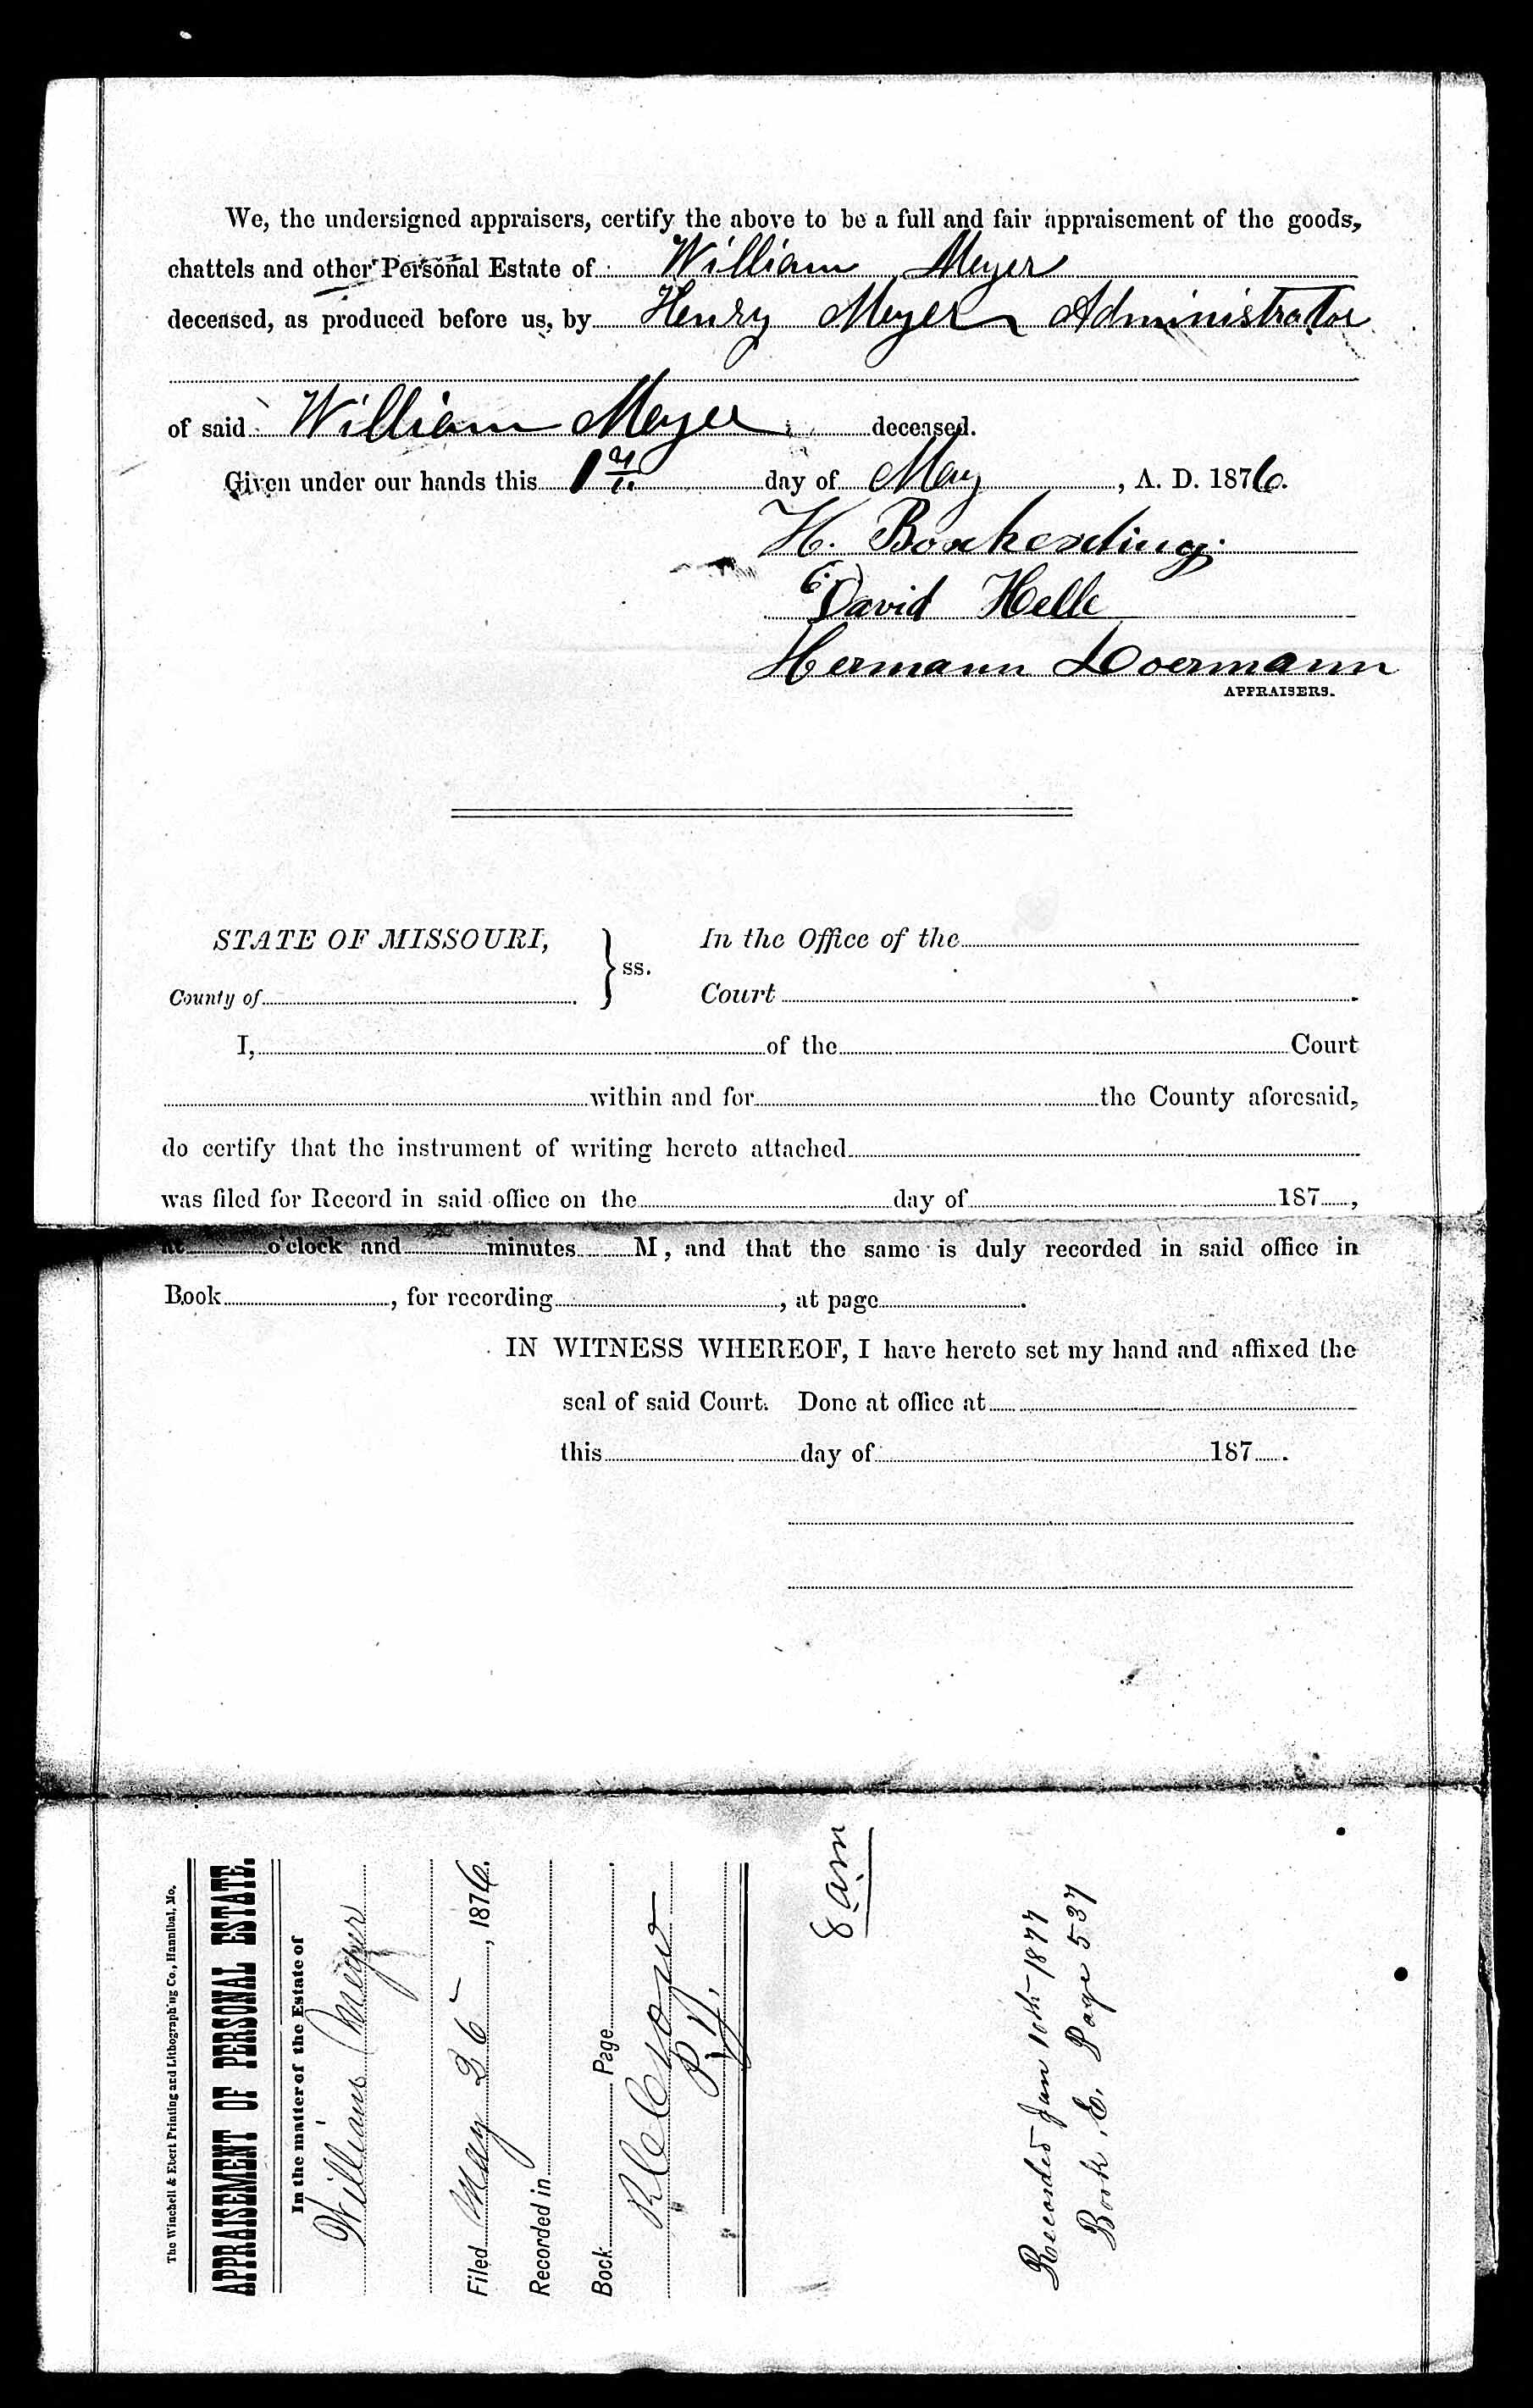 We, the undersigned appraisers, certify the above to be a full and fair appraisement of the goods,
chattels and other Personal Estate of William Meyer
deceased, as produced before us, by Henry Meyer Administrator
of said William Meyer deceased.
Given under our hands this 1 day of May, A. D. 1876.
H. Boxkending
David Helle
Hermann Doermann
APPRAISERS.
STATE OF MISSOURI,
County of
ss.
In the Office of the
Court
I, of the Court
within and for the County aforesaid,
do certify that the instrument of writing hereto attached
was filed for Record in said office on the day of 187 ,
at o'clock and minutes M, and that the same is duly recorded in said office in
Book , for recording , at page .
IN WITNESS WHEREOF, I have hereto set my hand and affixed the
seal of said Court. Done at office at
this day of 187 .
The Winchell & Ebert Printing and Lithographing Co., Hannibal, Mo.
APPRAISEMENT OF PERSONAL ESTATE.
In the matter of the Estate of
William Meyer
Filed May 26, 1876.
Recorded in
Book Page
Recorded Jan 10th 1877
Book E, Page 537